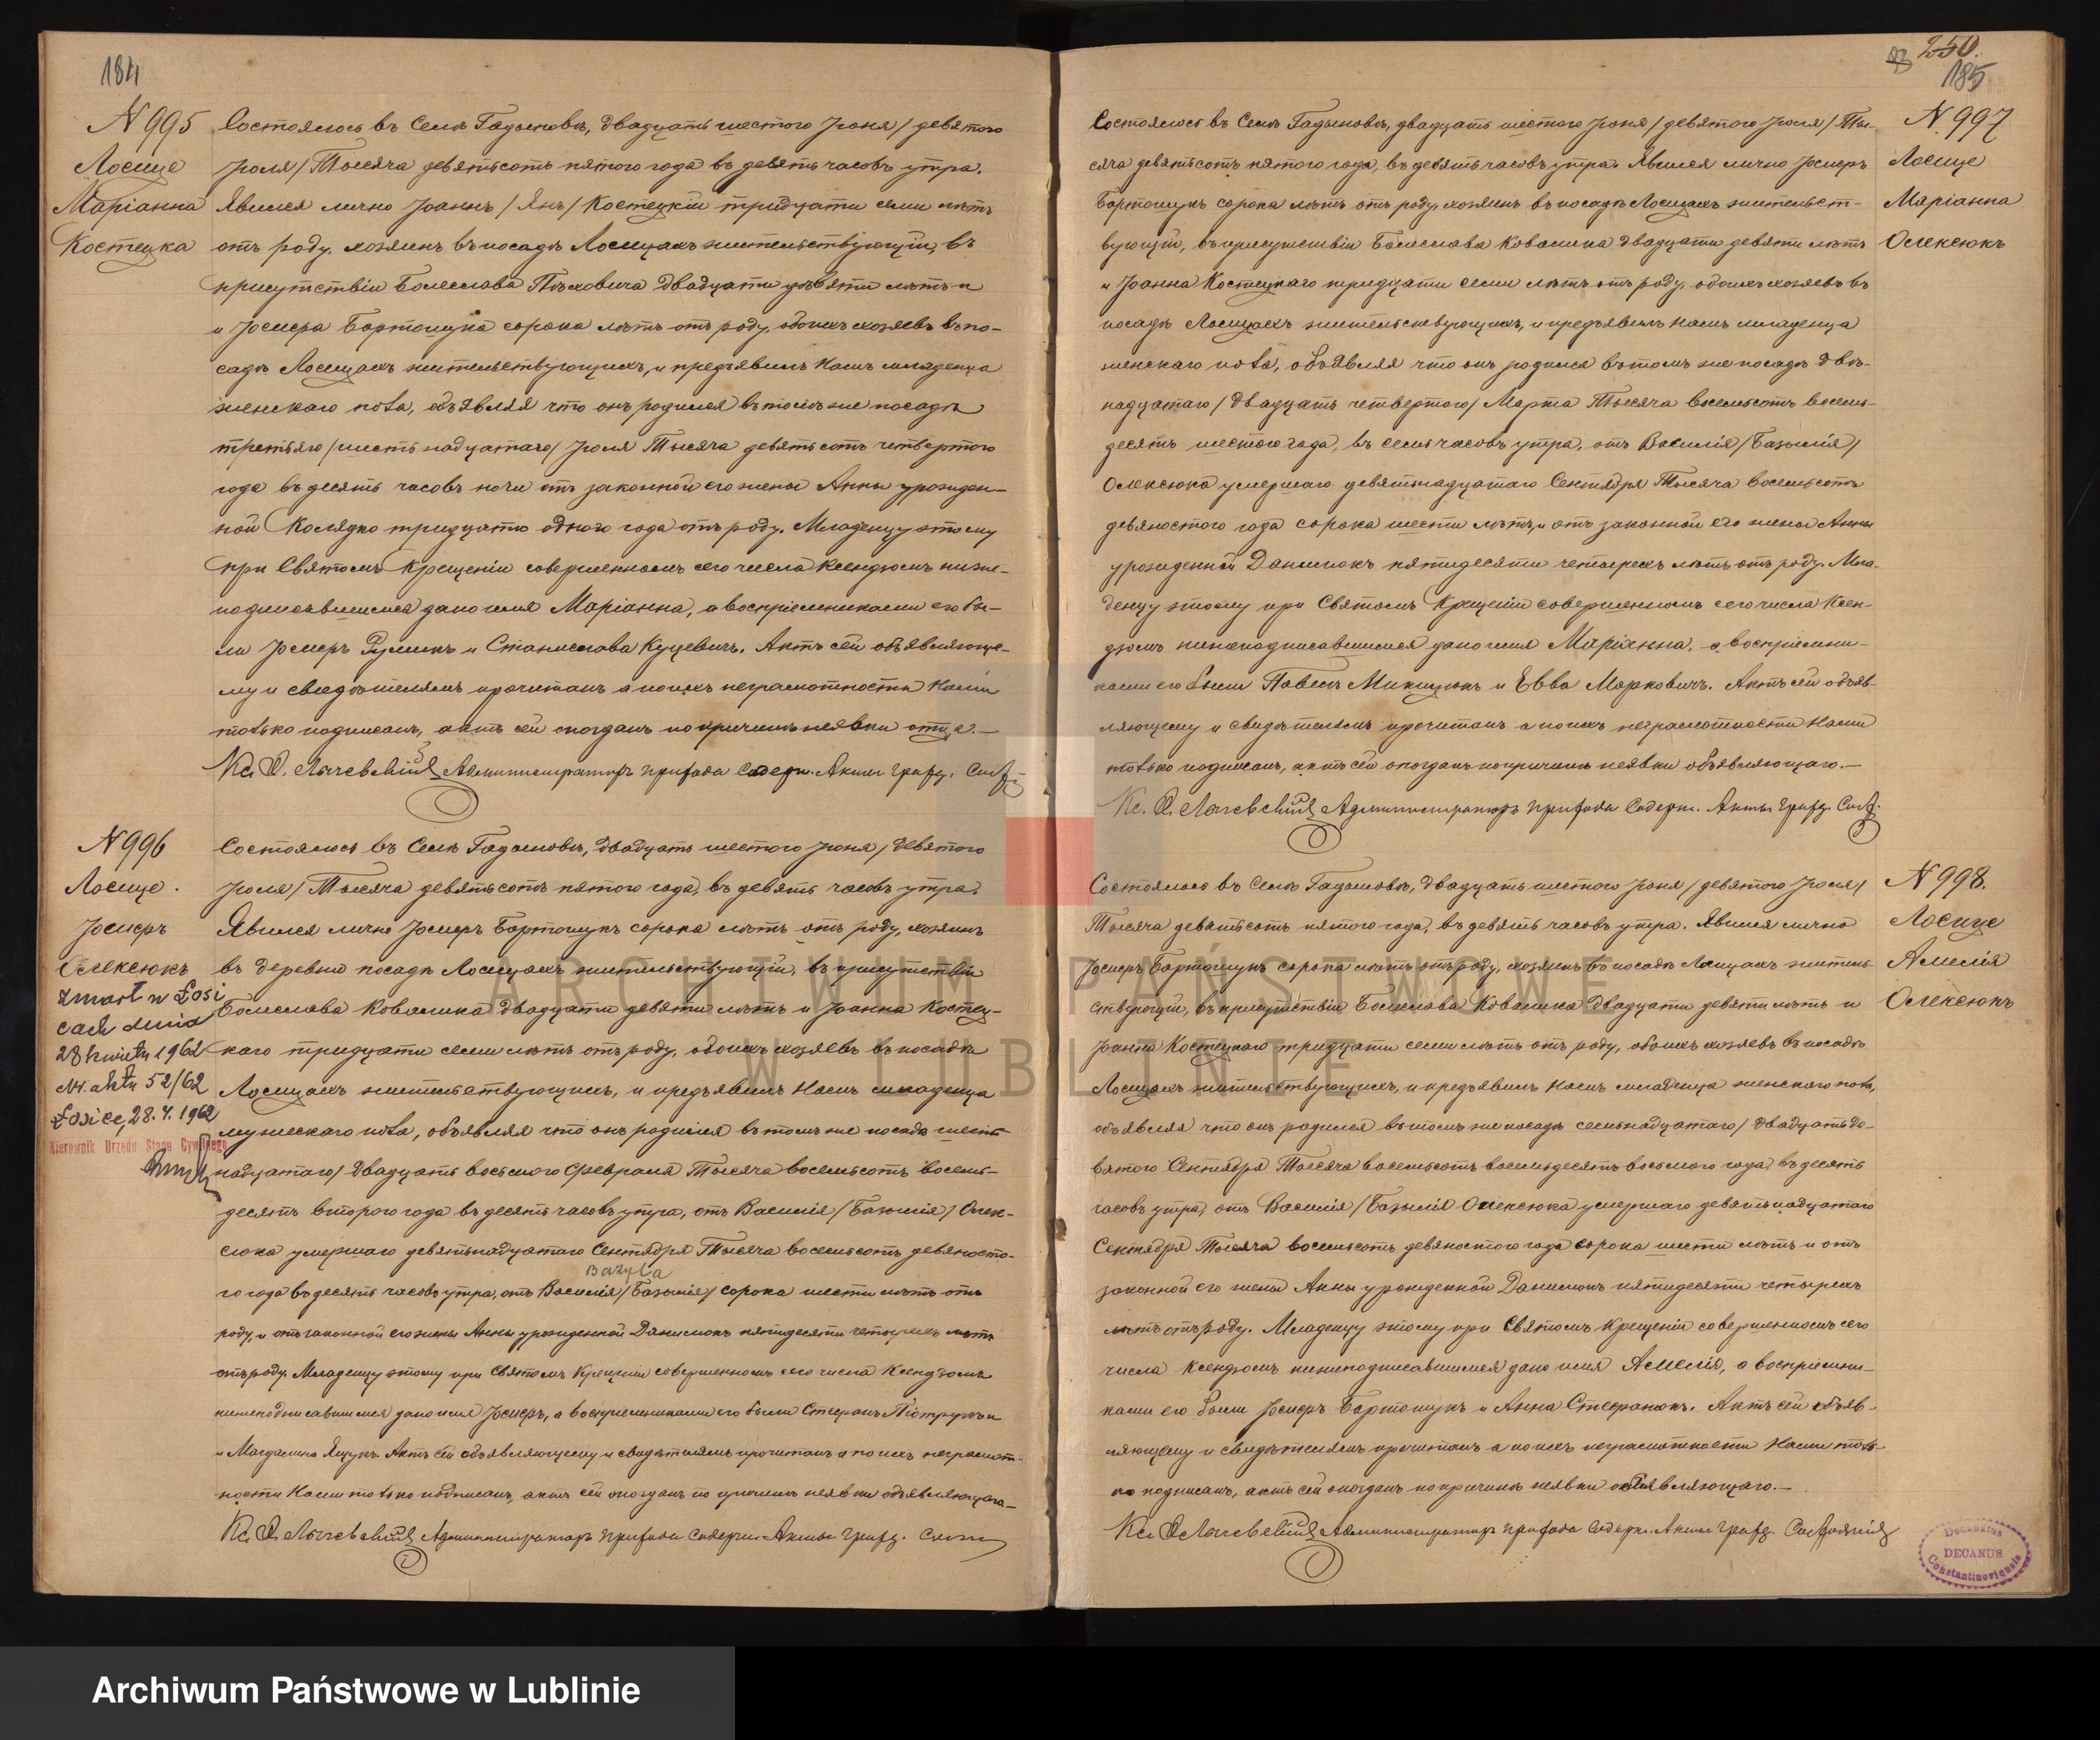 184
N 995
Лосице
Маріанна
Костецка
Состоялось въ Селѣ Гадыновѣ, двадцать шестого Іюня / девятого
Іюля / Тысяча девятьсотъ пятого года въ девять часовъ утра.
Явился лично Іоаннъ / Янъ / Костецкій тридцати семи лѣтъ
отъ роду, хозяинъ въ посадѣ Лосицахъ жительствующій, въ
присутствіи Болеслава двадцати девяти лѣтъ и
и Іосифа Бартощука сорока лѣтъ отъ роду, обоихъ хозяевъ въ по-
садѣ Лосицахъ жительствующихъ, и предъявилъ Намъ младенца
женскаго пола, объявляя что онъ родился въ томъ же посадѣ
третьяго / шестьнадцатаго / Іюля Тысяча девятьсотъ четвертого
года въ десять часовъ ночи отъ законной его жены Анны урожден-
ной Колядко тридцати одного года отъ роду. Младенцу этому
при Святомъ Крещеніи совершенномъ сего числа Ксендзомъ ниже-
подписавшимся дано имя Маріанна, а воспріемниками его бы-
ли Іосифъ и Станислава Куцевичъ. Актъ сей объявляюще-
му и свидѣтелямъ прочитанъ а по ихъ неграмотности Нами
только подписанъ, актъ сей опозданъ по причинѣ неявки отца.—
Кс. Администраторъ прихода Содерж. Акты Гражд. Сост.
N 996
Лосице.
Іосифъ
Олексюкъ
zmarł w Łosi
cach dnia
28 kwietn 1962
Nr. aktu 52/62
Łosice, 28.4.1962
Kierownik Urzędu Stanu Cywilnego
Состоялось въ Селѣ Гадыновѣ, двадцать шестого Іюня / девятого
Іюля / Тысяча девятьсотъ пятого года, въ девять часовъ утра.
Явился лично Іосифъ Бартощукъ сорока лѣтъ отъ роду, хозяинъ
въ деревни посадѣ Лосицахъ жительствующій, въ присутствіи
Болеслава Ковалика двадцати девяти лѣтъ и Іоанна Костец-
каго тридцати семи лѣтъ отъ роду, обоихъ хозяевъ въ посадѣ
Лосицахъ жительствующихъ, и предъявилъ Намъ младенца
мужескаго пола, объявляя что онъ родился въ томъ же посадѣ шест-
надцатаго / двадцать восьмого Февраля Тысяча восемьсотъ восемь-
десятъ второго года въ десять часовъ утра, отъ Василія / Базылія / Олек-
сюка умершаго девятьнадцатаго Сентября Тысяча восемьсотъ девяносто-
Bazyla
го года въ десять часовъ утра, отъ Василія / Базылія / сорока шести лѣтъ отъ
роду, и отъ законной его жены Анны урожденной Данилюкъ пятидесяти четырехъ лѣтъ
отъ роду. Младенцу этому при Святомъ Крещеніи совершенномъ сего числа Ксендзомъ
нижеподписавшимся дано имя Іосифъ, а воспріемниками его были Стефанъ
и Магдалина Яцукъ. Актъ сей объявляющему и свидѣтелямъ прочитанъ а по ихъ неграмот-
ности Нами только подписанъ, актъ сей опозданъ по причинѣ неявки объявляющаго—
Кс. Администраторъ прихода Содерж. Акты Гражд. Сост.
250.
185
N. 997
Лосице
Маріанна
Олексюкъ
Состоялось въ Селѣ Гадыновѣ, двадцать шестого Іюня / девятого Іюля / Ты-
сяча девятьсотъ пятого года, въ девять часовъ утра. Явился лично Іосифъ
Бартощукъ сорока лѣтъ отъ роду, хозяинъ въ посадѣ Лосицахъ жительст-
вующій, въ присутствіи Болеслава Ковалика двадцати девяти лѣтъ
и Іоанна Костецкаго тридцати семи лѣтъ отъ роду, обоихъ хозяевъ въ
посадѣ Лосицахъ жительствующихъ, и предъявилъ Намъ младенца
женскаго пола, объявляя что онъ родился въ томъ же посадѣ двѣ-
надцатаго / двадцать четвертого / Марта Тысяча восемьсотъ восемь-
десятъ шестого года, въ семь часовъ утра, отъ Василія / Базылія /
Олексюка умершаго девятьнадцатаго Сентября Тысяча восемьсотъ
девяностого года сорока шести лѣтъ, и отъ законной его жены Анны
урожденной Данилюкъ пятидесяти четырехъ лѣтъ отъ роду. Мла-
денцу этому при Святомъ Крещеніи совершенномъ сего числа Ксен-
дзомъ нижеподписавшимся дано имя Маріанна, а воспріемни-
ками его были Павелъ Микицюкъ и Евва Марковичъ. Актъ сей объяв-
ляющему и свидѣтелямъ прочитанъ а по ихъ неграмотности Нами
только подписанъ, актъ сей опозданъ по причинѣ неявки объявляющаго.—
Кс. Администраторъ прихода Содерж. Акты Гражд. Сост.
N 998.
Лосице
Амелія
Олексюкъ
Состоялось въ Селѣ Гадыновѣ, двадцать шестого Іюня / девятого Іюля /
Тысяча девятьсотъ пятого года, въ девять часовъ утра. Явился лично
Іосифъ Бартощукъ сорока лѣтъ отъ роду, хозяинъ въ посадѣ Лосицахъ житель-
ствующій, въ присутствіи Болеслава Ковалика двадцати девяти лѣтъ и
Іоанна Костецкаго тридцати семи лѣтъ отъ роду, обоихъ хозяевъ въ посадѣ
Лосицахъ жительствующихъ, и предъявилъ Намъ младенца женскаго пола,
объявляя что онъ родился въ томъ же посадѣ семьнадцатаго / двадцать де-
вятого Сентября Тысяча восемьсотъ восемьдесятъ восьмого года, въ десять
часовъ утра, отъ Василія / Базылія Олексюка умершаго девятьнадцатаго
Сентября Тысяча восемьсотъ девяностого года сорока шести лѣтъ и отъ
законной его жены Анны урожденной Данилюкъ пятидесяти четырехъ
лѣтъ отъ роду. Младенцу этому при Святомъ Крещеніи совершенномъ сего
числа Ксендзомъ нижеподписавшимся дано имя Амелія, а воспріемни-
ками его были Іосифъ Бартощукъ и Анна Стефанюкъ. Актъ сей объяв-
ляющему и свидѣтелямъ прочитанъ а по ихъ неграмотности Нами толь-
ко подписанъ, актъ сей опозданъ по причинѣ неявки объявляющаго.—
Кс. Администраторъ прихода Содерж. Акты Гражд. Состоянія
Decanatus
DECANUS
Constantinoviensis
ARCHIWUM PAŃSTWOWE
W LUBLINIE
Archiwum Państwowe w Lublinie